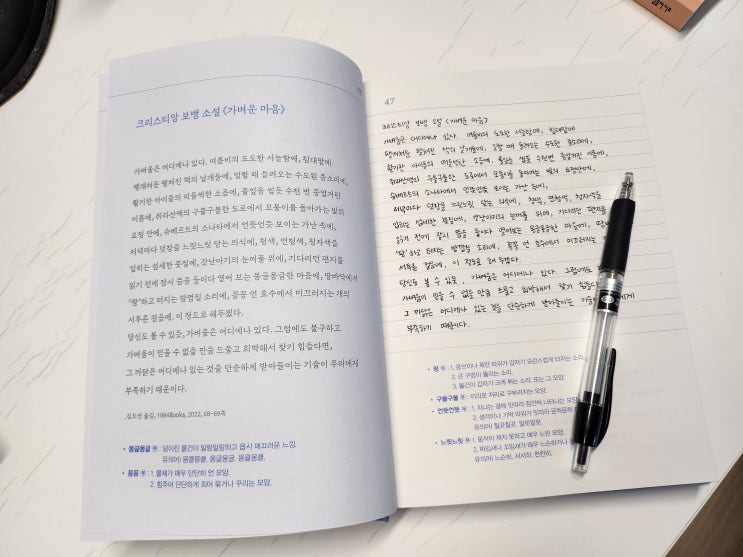 크리스티앙 보뱅 소설 《가벼운 마음》
가벼움은 어디에나 있다. 여름비의 도도한 서늘함에, 침대맡에
팽개쳐둔 펼쳐진 책의 날개들에, 일할 때 들려오는 수도원 종소리에,
활기찬 아이들의 떠들썩한 소음에, 풀잎을 씹듯 수천 번 중얼거린
이름에, 쥐라산맥의 구불구불한 도로에서 모퉁이를 돌아가는 빛의
요정 안에, 슈베르트의 소나타에서 언뜻언뜻 보이는 가난 속에,
저녁마다 덧창을 느릿느릿 닫는 의식에, 청색, 연청색, 청자색을
입히는 섬세한 붓질에, 갓난아기의 눈꺼풀 위에, 기다리던 편지를
읽기 전에 잠시 뜸을 들이다 열어 보는 몽글몽글한 마음에, 땅바닥에서
‘팡’하고 터지는 밤껍질 소리에, 꽁꽁 언 호수에서 미끄러지는 개의
서투른 걸음에. 이 정도로 해두겠다.
당신도 볼 수 있듯, 가벼움은 어디에나 있다. 그럼에도 불구하고
가벼움이 믿을 수 없을 만큼 드물고 희박해서 찾기 힘들다면,
그 까닭은 어디에나 있는 것을 단순하게 받아들이는 기술이 우리에게
부족하기 때문이다.
_김도연 옮김, 1984Books, 2022, 68~69쪽
• 몽글몽글 부: 덩이진 물건이 말랑말랑하고 몹시 매끄러운 느낌.
유의어) 뭉클뭉클, 몽글몽글, 몽클몽클.
• 꽁꽁 부: 1. 물체가 매우 단단히 언 모양.
2. 힘주어 단단하게 죄어 묶거나 꾸리는 모양.
47
크리스티앙 보뱅 소설 《가벼운 마음》
가벼움은 어디에나 있다. 여름비의 도도한 서늘함에, 침대맡에
팽개쳐둔 펼쳐진 책의 날개들에, 일할 때 들려오는 수도원 종소리에,
활기찬 아이들의 떠들썩한 소음에, 풀잎을 씹듯 수천번 중얼거린 이름에,
쥐라산맥의 구불구불한 도로에서 모퉁이를 돌아가는 빛의 요정안에,
슈베르트의 소나타에서 언뜻언뜻 보이는 가난 속에,
저녁마다 덧창을 느릿느릿 닫는 의식에, 청색, 연청색, 청자색을
입히는 섬세한 붓질에, 갓난아기의 눈꺼풀 위에, 기다리던 편지를
읽기 전에 잠시 뜸을 들이다 열어보는 몽글몽글한 마음에,
'팡'하고 터지는 밤껍질 소리에, 꽁꽁 언 호수에서 미끄러지는
서투른 걸음에, 이 정도로 해 두겠다.
당신도 볼 수 있듯, 가벼움은 어디에나 있다. 그럼에도
가벼움이 믿을 수 없을 만큼 드물고 희박해서 찾기 힘들다
그 까닭은 어디에나 있는 것을 단순하게 받아들이는 기술 에게
부족하기 때문이다.
• 팡 부: 1. 풍선이나 폭탄 따위가 갑자기 요란스럽게 터지는 소리.
2. 큰 구멍이 뚫리는 소리.
3. 물건이 갑자기 크게 튀는 소리. 또는 그 모양.
• 구불구불 부: 이리로 저리로 구부러지는 모양.
• 언뜻언뜻 부: 1. 지나는 결에 잇따라 잠깐씩 나타나는 모양.
2. 생각이나 기억 따위가 잇따라 문득문득
유의어) 힐끗힐끗, 얼핏얼핏.
• 느릿느릿 부: 1. 동작이 재지 못하고 매우 느린 모양.
2. 짜임새나 꼬임새가 매우 느슨하거나
유의어) 느슨히, 서서히, 천천히.